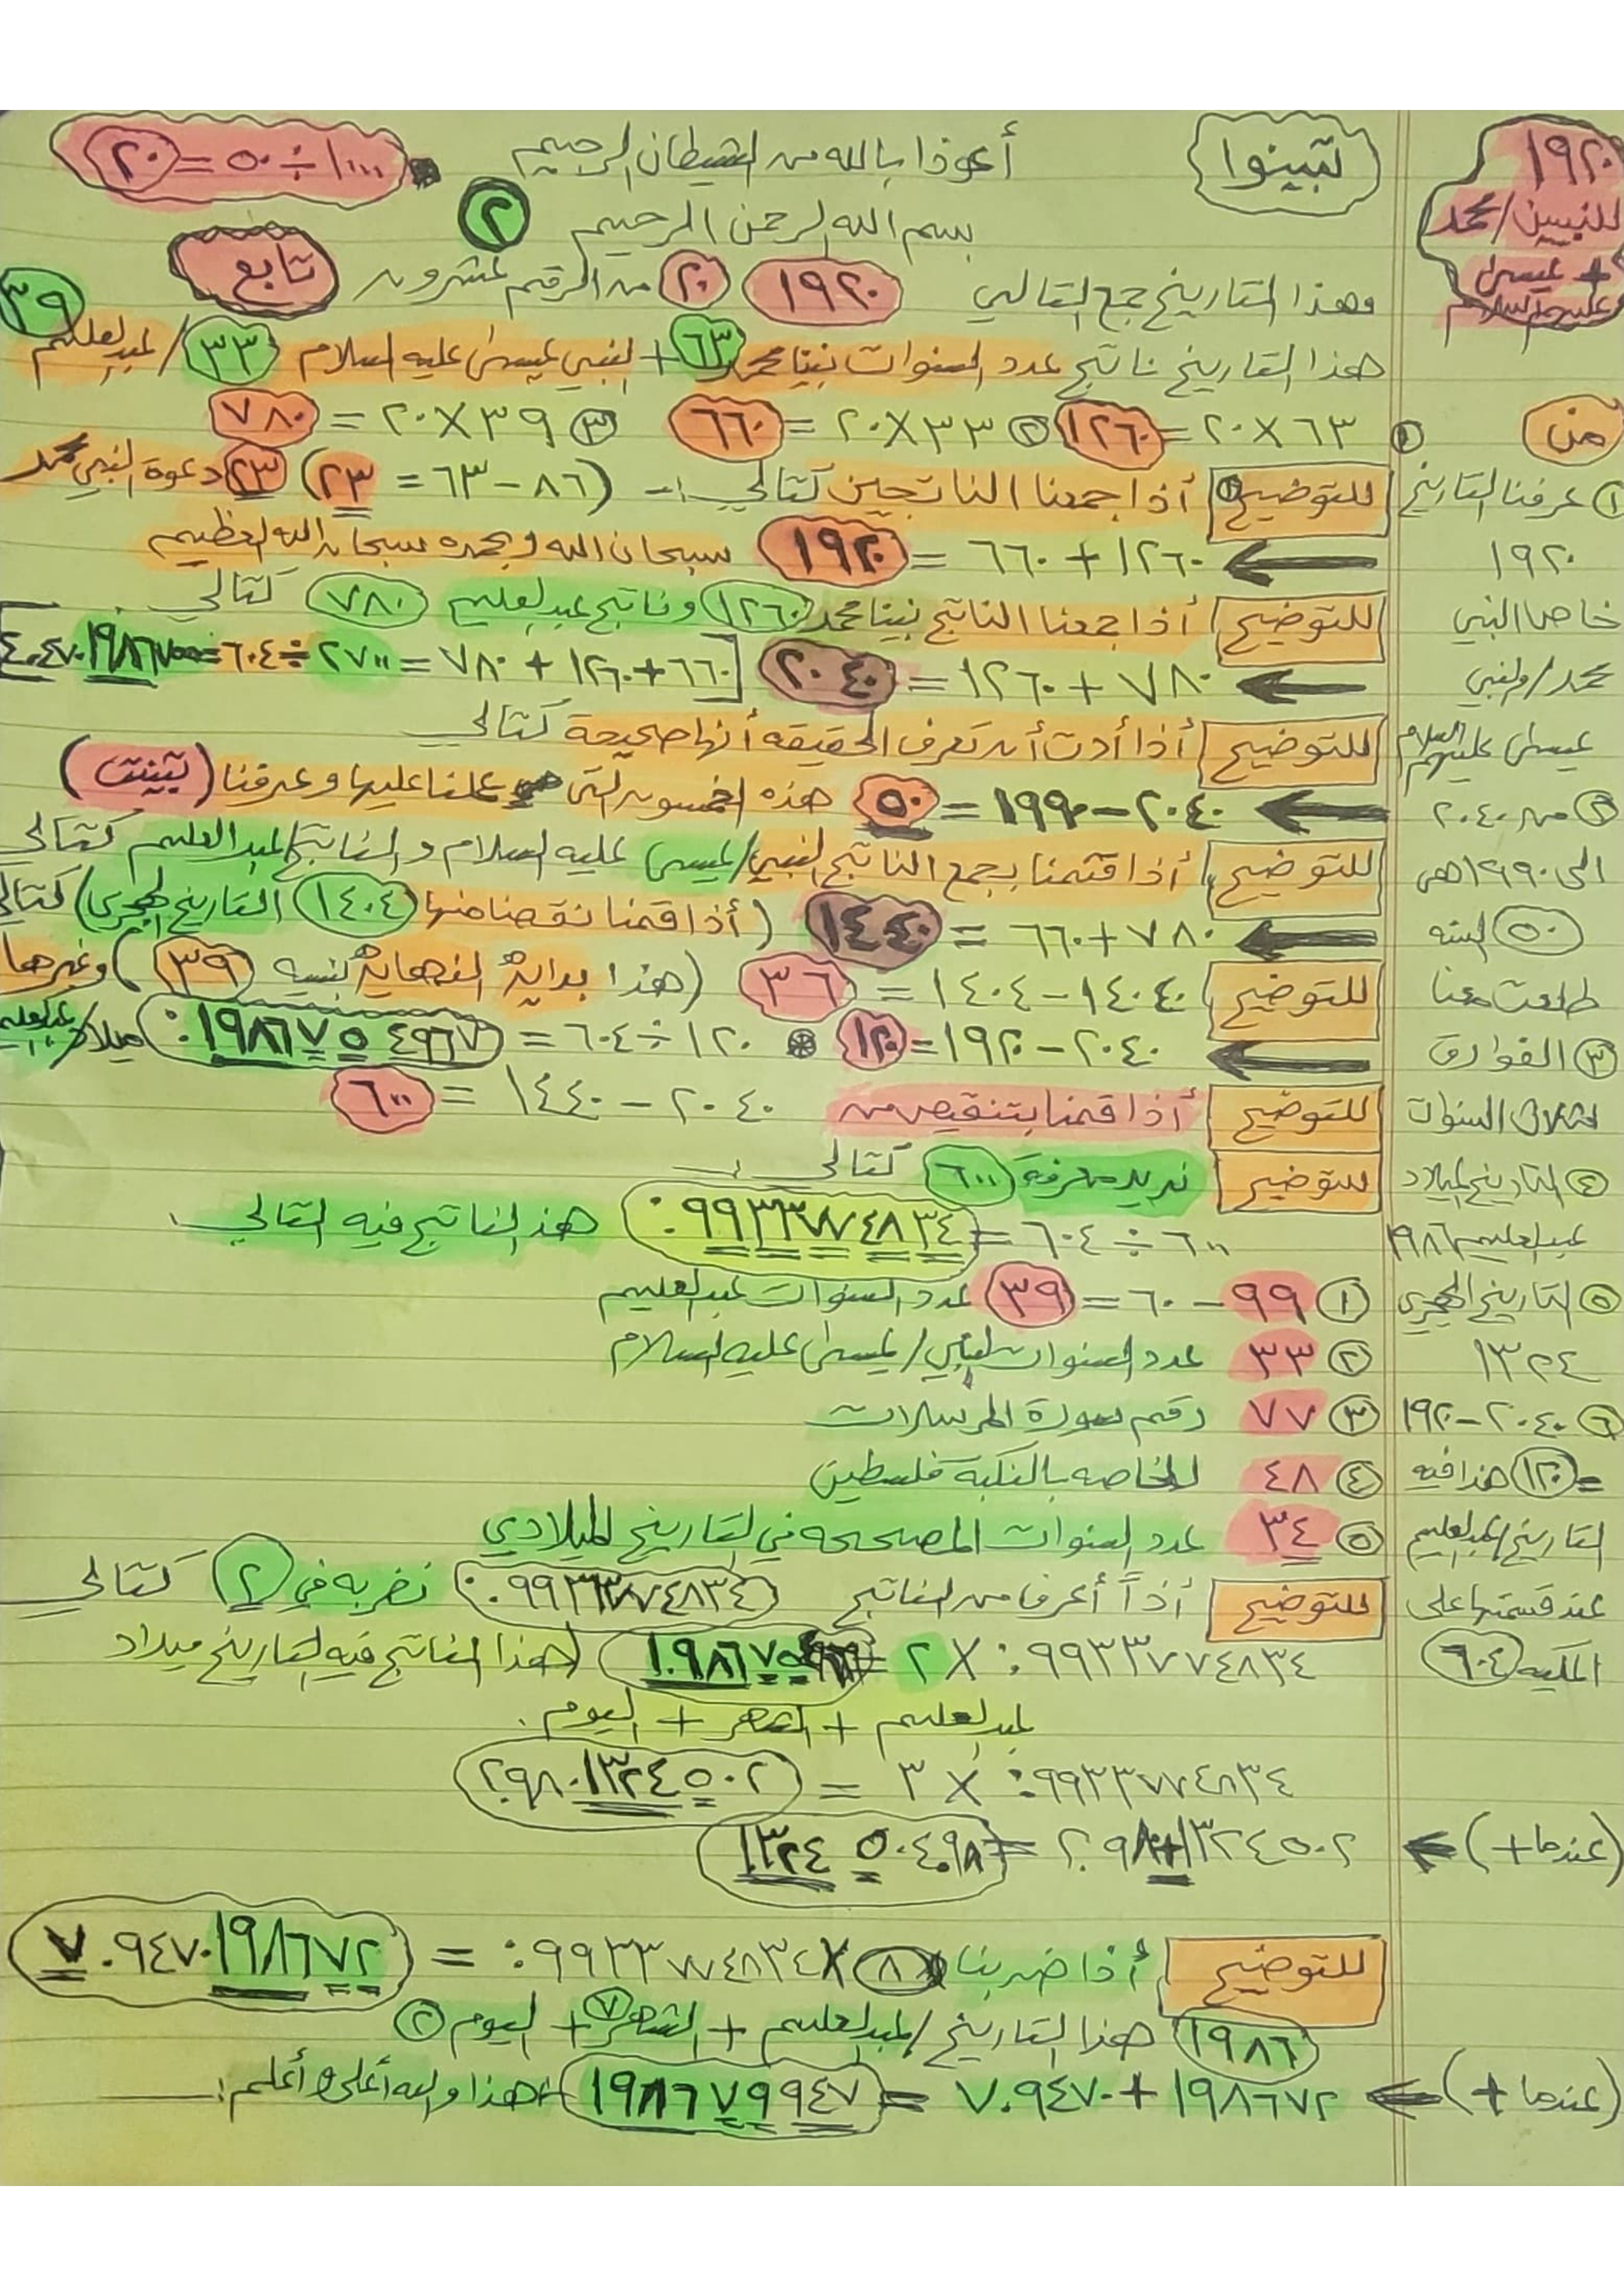 ١٩٢٠
للنبيين/محمد
+ عيسى
عليهم السلام
تبينوا
أعوذا بالله من الشيطان الرجيم
١٠٠٠ ÷ ٥٠ = ٢٠
بسم الله الرحمن الرحيم ٢
وهذا التاريخ جمع التالي ١٩٢٠ ٢٠ من الرقم عشرون تابع
٣٩
هذا التاريخ ناتج عدد السنوات نبينا محمد ٦٣ + النبي عيسى عليه السلام ٣٣ / عبدالعليم
① ٦٣ X ٢٠ = ١٢٦٠ ② ٣٣ X ٢٠ = ٦٦٠ ③ ٣٩ X ٢٠ = ٧٨٠
للتوضيح أذا جمعنا الناتجين كتالي :- (٨٦ - ٦٣ = ٢٣) ٢٣ دعوة النبي محمد
١٢٦٠ + ٦٦٠ = ١٩٢٠ سبحان الله وبحمده سبحان الله العظيم
للتوضيح أذا جمعنا الناتج نبينا محمد ١٢٦٠ وناتج عبدالعليم ٧٨٠ كتالي
٧٨٠ + ١٢٦٠ = ٢٠٤٠ [٦٦٠ + ١٢٦٠ + ٧٨٠ = ٢٧٠٠ ÷ ٦٠٤ =
للتوضيح أذا أدت أن تعرف الحقيقه أنها صحيحة كتالي
٢٠٤٠ - ١٩٩٠ = ٥٠ هذه الخمسون التي علنا عليها وعرفنا (بتينت)
للتوضيح أذا قتمنا بجمع الناتج النبي/عيسى عليه السلام والناتج/عبدالعليم كتالي
٧٨٠ + ٦٦٠ = ١٤٤٠ (أذا قمنا نقصنا منها ١٤٠٤ التاريخ الهجري) كتالي
للتوضيح ١٤٤٠ - ١٤٠٤ = ٣٦ (هذا بداية النهاية لنسبه ٣٩) وغيرها
٢٠٤٠ - ١٩٢٠ = ١٢٠ ١٢٠ ÷ ٦٠٤ = ٠.١٩٨٦٧٥٤٩٦٧ ميلاد/عبدالعليم
للتوضيح أذا قمنا بتنقيص من ٢٠٤٠ - ١٤٤٠ = ٦٠٠
للتوضيح نريد معرفة ٦٠٠ كتالي :
٦٠٠ ÷ ٦٠٤ = ٠.٩٩٣٣٧٧٤٨٣٤ هذ الناتج فيه التالي
① ٩٩ - ٦٠ = ٣٩ عدد السنوات عبدالعليم
② ٣٣ عدد السنوات للنبي/عيسى عليه السلام
③ ٧٧ رقم سورة المرسلات
④ ٤٨ الخاصه بالنكبة فلسطين
⑤ ٣٤ عدد السنوات المصححه في التاريخ الميلادي
للتوضيح أذاً أعرف من الناتج ٠.٩٩٣٣٧٧٤٨٣٤ نضربه في ٢ كتالي
٠.٩٩٣٣٧٧٤٨٣٤ X ٢ = (هذا الناتج فيه التاريخ ميلاد
عبدالعليم + الشهر + اليوم.
٠.٩٩٣٣٧٧٤٨٣٤ X ٣ = ٢.٩٨٠١٣٢٤٥٠٢
(عندما +) ← ٢.٩٨+١٣٢٤٥٠٢ = ١٣٢٤٥٠٤.٩٨
للتوضيح أذا ضربنا ٨ X ٠.٩٩٣٣٧٧٤٨٣٤ = ٧.٩٤٧٠١٩٨٦٧٢
١٩٨٦ هذا التاريخ/عبدالعليم + الشهر ٧ + اليوم ②
(عندما +) ← ١٩٨٦٧٢ + ٧.٩٤٧٠ = ١٩٨٦٧٩٩٤٧ هذا والله أعلى وأعلم :
من
① عرفنا التاريخ
١٩٢٠
خاص النبي
محمد/والنبي
عيسى عليهم السلام
② من ٢٠٤٠
الى ١٩٩٠ هي
٥٠ السنه
طلعت معنا
③ الفوارق
السنوات
④ التاريخ الميلاد
عبدالعليم ١٩٨٦
⑤ التاريخ الهجري
١٣٢٤
⑥ ٢٠٤٠ - ١٩٢٠
= ١٢٠ هذا فيه
التاريخ/عبدالعليم
عند قسمتها على
المكيه ٦٠٤